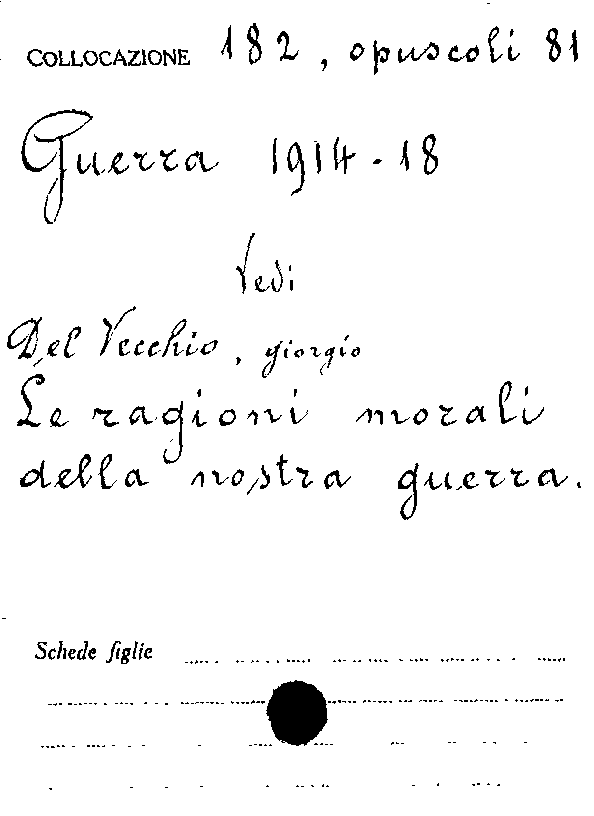 COLLOCAZIONE 182, opuscoli 81
Guerra 1914-18
Vedi
Del Vecchio, Giorgio
Le ragioni morali
della nostra guerra.
Schede figlie